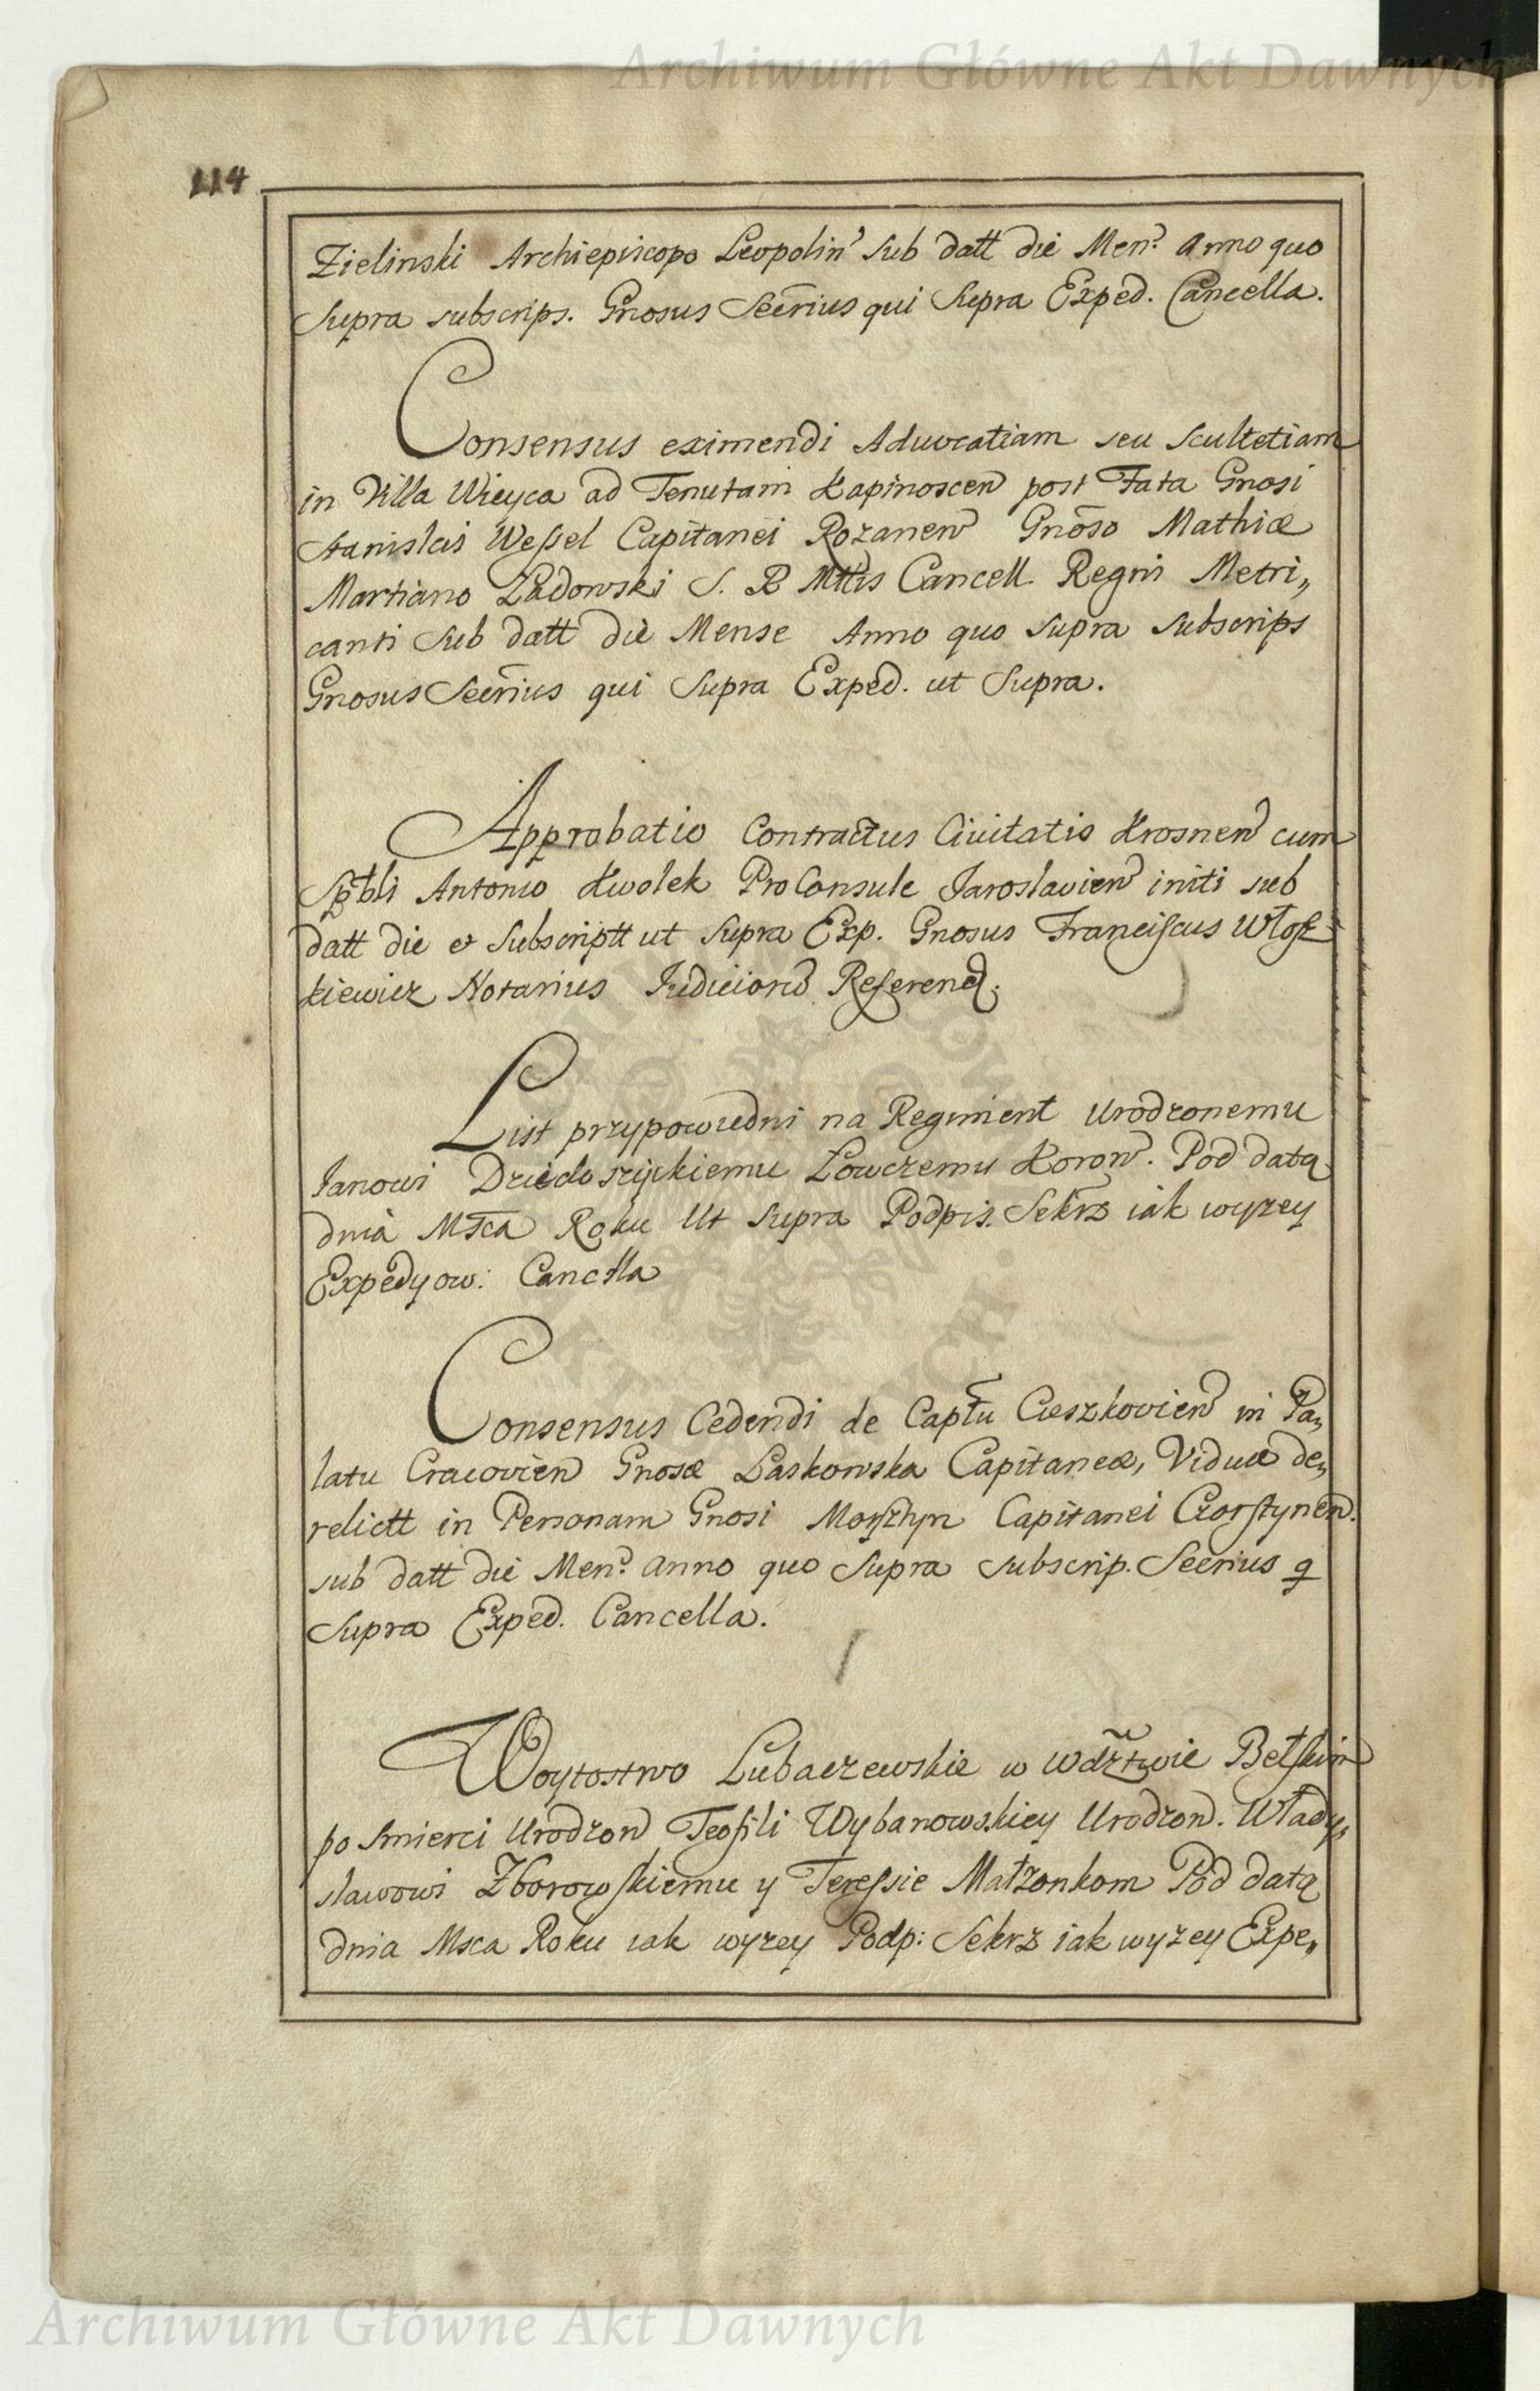 Archiwum Główne Akt Dawnych
114
Zielinski Archiepiscopo Leopolin sub datt die Men. Anno quo
supra subscrips. Gnosus Secrius qui supra Exped. Cancella.
Consensus eximendi Advocatiam seu scultetiam
in Villa Wieyca ad Tenutam Kapinoscen post Fata Gnosi
Stanislai Wessel Capitanei Rozanen Gnoso Mathiæ
Martiano Ładowski S. R. Mttis Cancell. Regni Metri„
canti sub datt die Mense Anno quo supra subscrips
Gnosus Secrius qui supra Exped. ut supra.
Approbatio Contractus Civitatis Krosnen cum
Spbli Antonio Kwolek ProConsule Jaroslavien initi sub
datt die et subscriptt ut supra Exp. Gnosus Franciscus Włos„
kiewicz Notarius Judicioru Referend.
List przypowiedni na Regiment Urodzonemu
Janowi Dziedoszyckiemu Łowczemu Koron. Pod datą
dnia Msca Roku Ut supra Podpis. Sekrz iak wyzey
Expedyow: Cancella
Consensus Cedendi de Captu Cieszkovien in Pa„
latu Cracovien Gnosæ Laskowska Capitaneæ, Viduæ de„
relictt in Personam Gnosi Morsztyn Capitanei Czorstynen.
sub datt die Men. anno quo supra subscrip. Secrius q
supra Exped. Cancella.
Woytostwo Lubaczewskie w Wdztwie Bełskim
po smierci Urodzon Teofili Wybanowskiey Urodzon. Włady„
sławowi Zborowskiemu y Teressie Małzonkom Pod datą
dnia Msca Roku iak wyzey Podp: Sekrz iak wyzey Expe„
Archiwum Główne Akt Dawnych